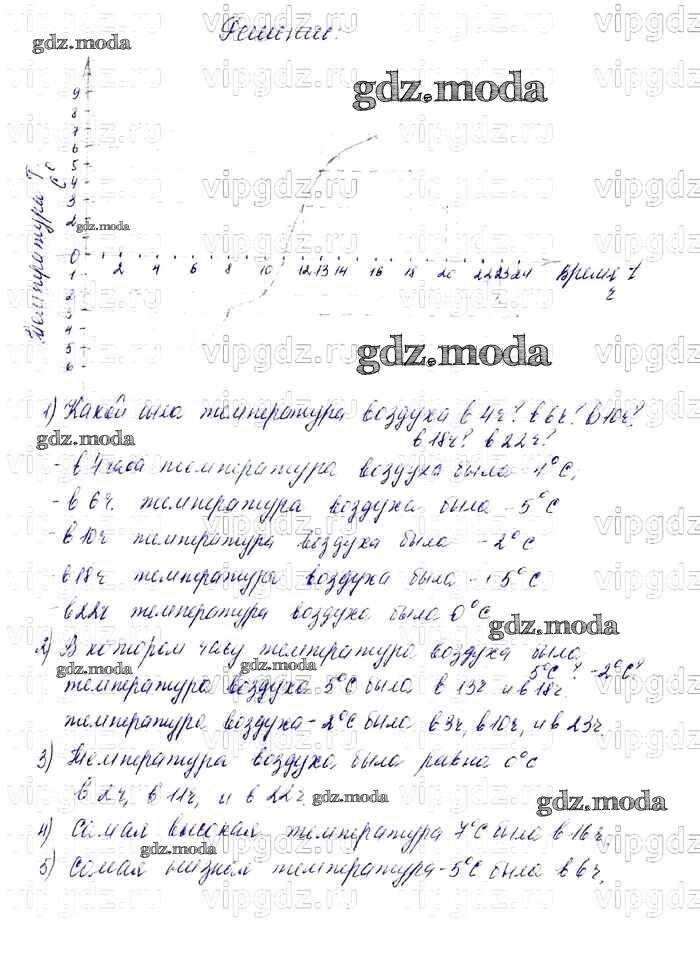 Решение:
gdz.moda
gdz.moda
gdz.moda
Температура T, C°
9
8
7
6
5
4
3
2
0
1
2
3
4
5
6
2 4 6 8 10 12 13 14 16 18 20 22 23 24
Время t
ч
gdz.moda
1) Какой была температура воздуха в 4ч? в 6ч? в 10ч?
в 18ч? в 22ч?
gdz.moda
- в 4 часа температура воздуха была -4°C;
- в 6ч. температура воздуха была -5°C
- в 10ч температура воздуха была -2°C
- в 18ч температура воздуха была +5°C
- в 22ч температура воздуха была 0°C
gdz.moda
2) В котором часу температура воздуха была
5°C? -2°C?
gdz.moda
gdz.moda
температура воздуха 5°C была в 13ч и в 18ч.
температура воздуха -2°C была в 3ч, в 10ч, и в 23ч.
3) Температура воздуха была равна 0°C
в 2ч, в 11ч, и в 22ч,
gdz.moda
gdz.moda
4) Самая высокая температура 7°C была в 16ч,
gdz.moda
5) Самая низкая температура -5°C была в 6ч,
vipgdz.ru